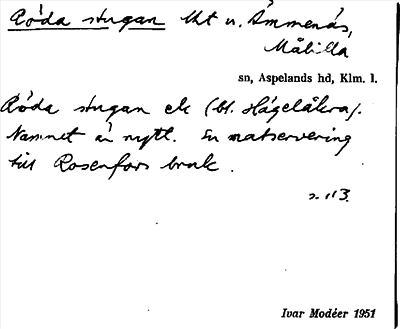 Röda stugan lht u. Ämmenäs,
Målilla
sn, Aspelands hd, Klm. l.
Röda stugan ek (bl. Hägelåkra).
Namnet är nytt. En matservering
till Rosenfors bruk.
s. 113.
Ivar Modéer 1951